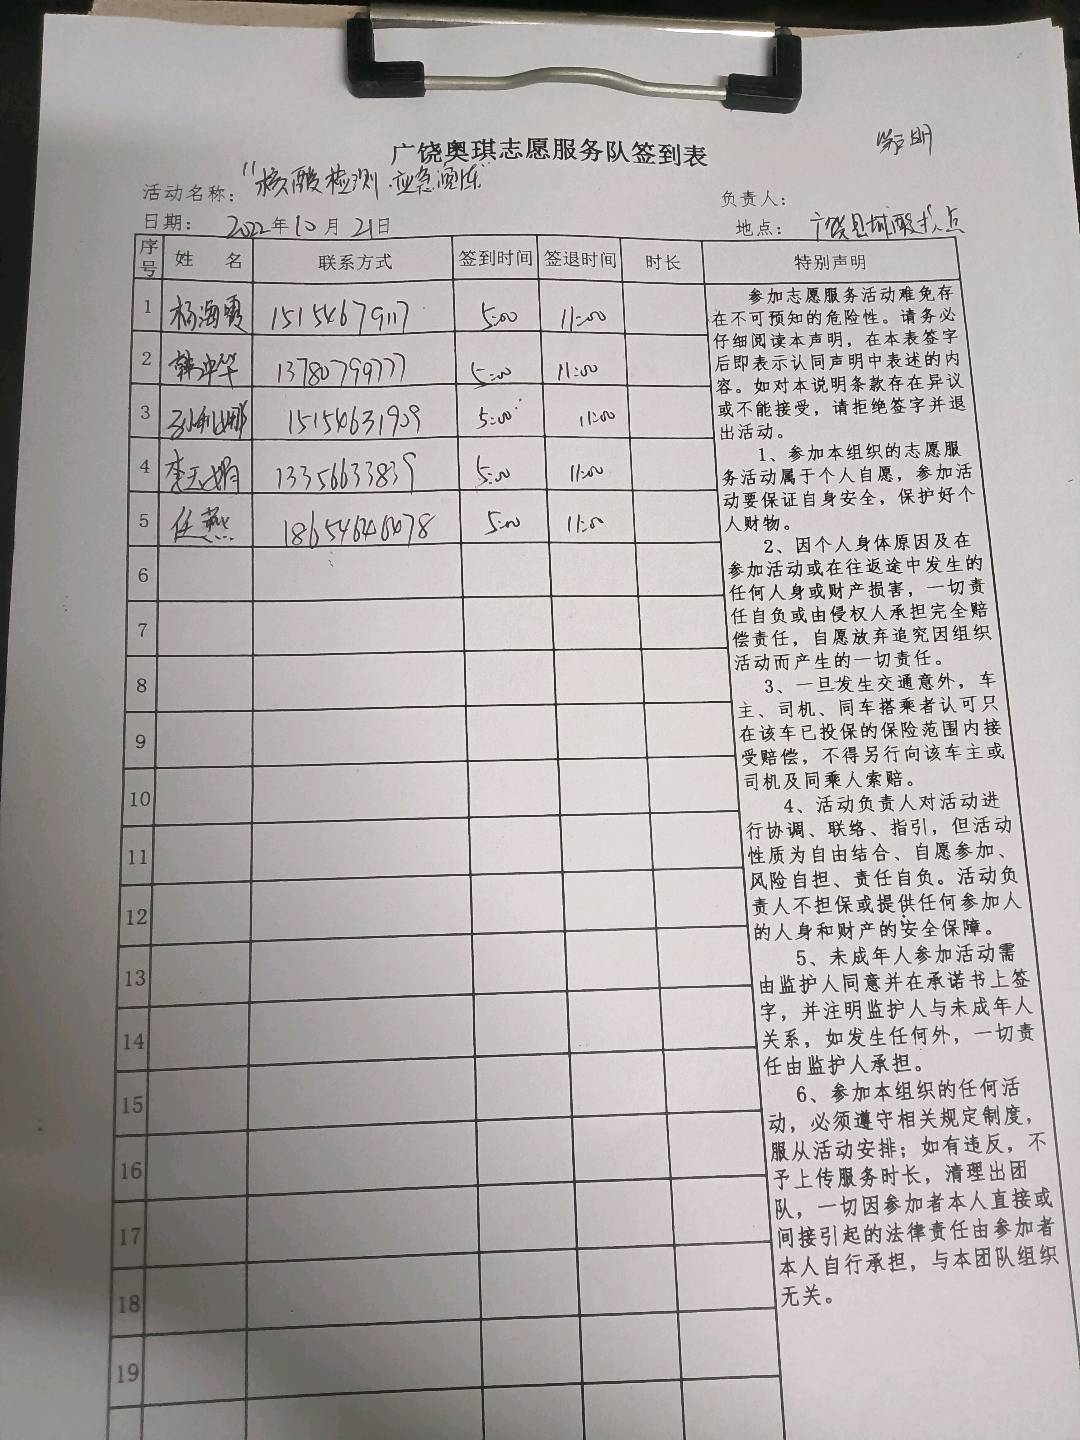 广饶奥琪志愿服务队签到表
活动名称："核酸检测应急演练"
负责人：
日期： 2022年10月21日
地点： 广饶县城
序号 姓 名 联系方式 签到时间 签退时间 时长 特别声明
1 杨海霞 15154679117 5:00 11:00
2 韩冲华 13780799777 5:00 11:00
3 孙利娜 15154631909 5:00 11:00
4 李天娟 13356633839 5:00 11:00
5 任燕 18654646478 5:00 11:00
6
7
8
9
10
11
12
13
14
15
16
17
18
19
参加志愿服务活动难免存
在不可预知的危险性。请务必
仔细阅读本声明，在本表签字
后即表示认同声明中表述的内
容。如对本说明条款存在异议
或不能接受，请拒绝签字并退
出活动。
1、参加本组织的志愿服
务活动属于个人自愿，参加活
动要保证自身安全，保护好个
人财物。
2、因个人身体原因及在
参加活动或在往返途中发生的
任何人身或财产损害，一切责
任自负或由侵权人承担完全赔
偿责任，自愿放弃追究因组织
活动而产生的一切责任。
3、一旦发生交通意外，车
主、司机、同车搭乘者认可只
在该车已投保的保险范围内接
受赔偿，不得另行向该车主或
司机及同乘人索赔。
4、活动负责人对活动进
行协调、联络、指引，但活动
性质为自由结合、自愿参加、
风险自担、责任自负。活动负
责人不担保或提供任何参加人
的人身和财产的安全保障。
5、未成年人参加活动需
由监护人同意并在承诺书上签
字，并注明监护人与未成年人
关系，如发生任何外，一切责
任由监护人承担。
6、参加本组织的任何活
动，必须遵守相关规定制度，
服从活动安排；如有违反，不
予上传服务时长，清理出团
队，一切因参加者本人直接或
间接引起的法律责任由参加者
本人自行承担，与本团队组织
无关。